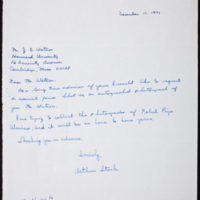 December 11, 1971
Mr. J. D. Watson
Harvard University
16 Divinity Avenue
Cambridge, Mass 02138
Dear Mr. Watson:
As a long time admirer of yours I would like to request
a special favor, that is an autographed photograph of
you Mr. Watson.
I am trying to collect the photographs of Nobel Prize
Winners, and it will be an honor to have yours.
Thanking you in advance.
Sincerely,
Arthur